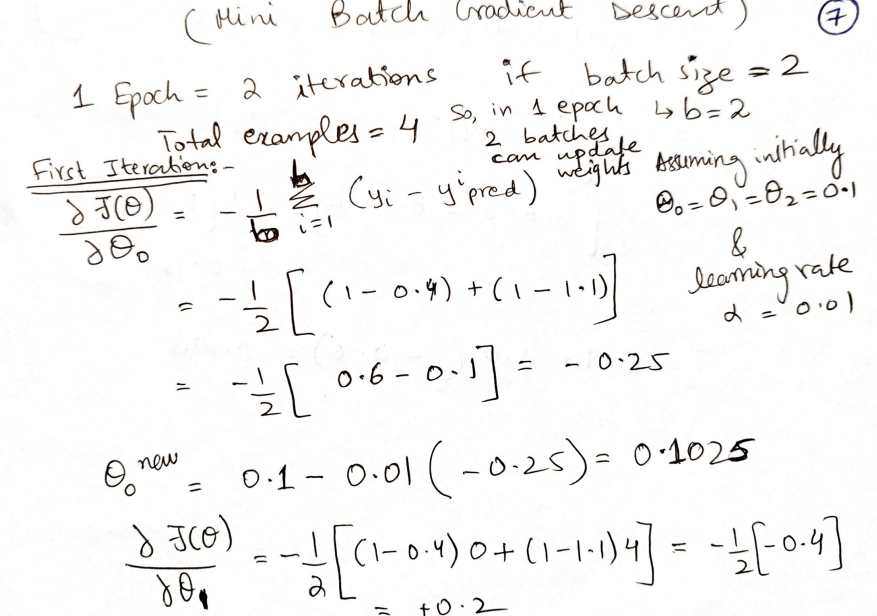 (Mini Batch Gradient Descent) 7
1 Epoch = 2 iterations if batch size = 2
Total examples = 4 So, in 1 epoch ↳ b = 2
2 batches
can update
weights
Assuming initially
θ₀ = θ₁ = θ₂ = 0.1
&
learning rate
α = 0.01
First Iteration:-
∂J(θ)/∂θ₀ = -1/b Σᵇᵢ₌₁ (yi - yⁱpred)
= -1/2 [(1 - 0.4) + (1 - 1.1)]
= -1/2 [0.6 - 0.1] = -0.25
θ₀ⁿᵉʷ = 0.1 - 0.01 (-0.25) = 0.1025
∂J(θ)/∂θ₁ = -1/2 [(1-0.4) 0 + (1-1.1) 4] = -1/2 [-0.4]
= +0.2